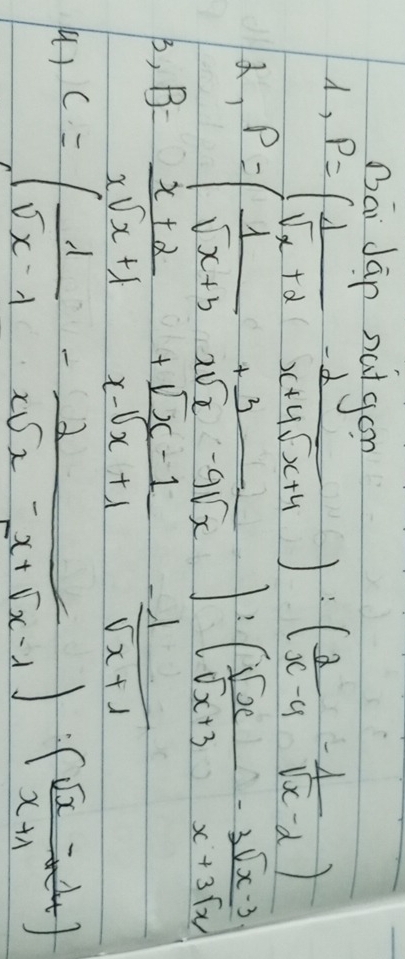 Bài tập rút gọn
1, P = (1/(√x+2) - 2/(x+4√x+4)) : (2/(x-4) - 1/(√x-2))
2, P = (1/(√x+3) + 3/(x√x-9√x)) : (√x/(√x+3) - (3√x-3)/(x+3√x))
3, B = (x+2)/(x√x+1) + (√x-1)/(x-√x+1) - 1/(√x+1)
4, C = (1/(√x-1) - 2/(x√x-x+√x-1)) :